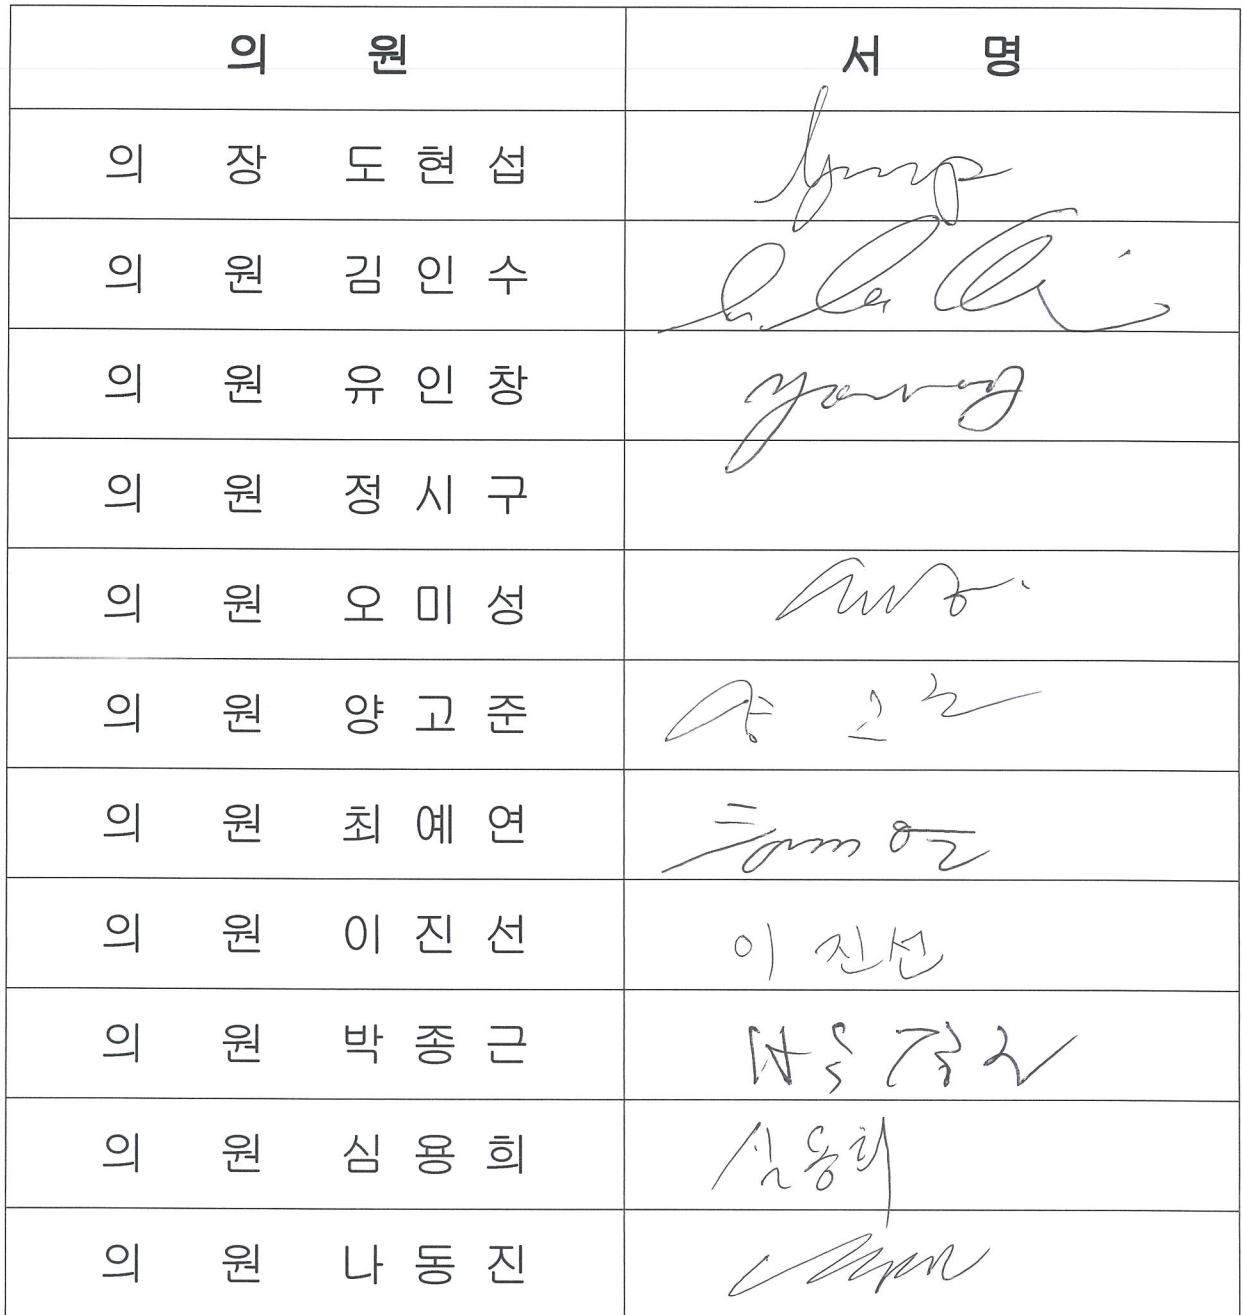 의 원 서 명
의 장 도 현 섭
의 원 김 인 수
의 원 유 인 창
의 원 정 시 구
의 원 오 미 성
의 원 양 고 준 양 고 준
의 원 최 예 연
의 원 이 진 선 이 진 선
의 원 박 종 근
의 원 심 용 희 심 용 희
의 원 나 동 진